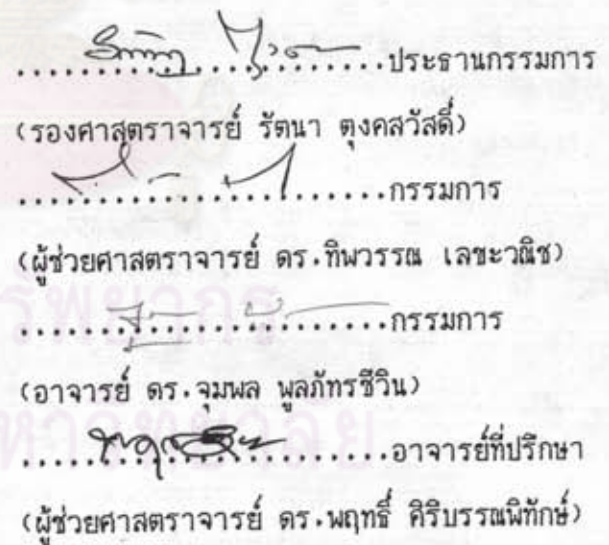 ......................ประธานกรรมการ
(รองศาสตราจารย์ รัตนา ตุงคสวัสดิ์)
......................กรรมการ
(ผู้ช่วยศาสตราจารย์ ดร.ทิพวรรณ เลขะวณิช)
......................กรรมการ
(อาจารย์ ดร.จุมพล พูลภัทรชีวิน)
......................อาจารย์ที่ปรึกษา
(ผู้ช่วยศาสตราจารย์ ดร.พฤทธิ์ ศิริบรรณพิทักษ์)